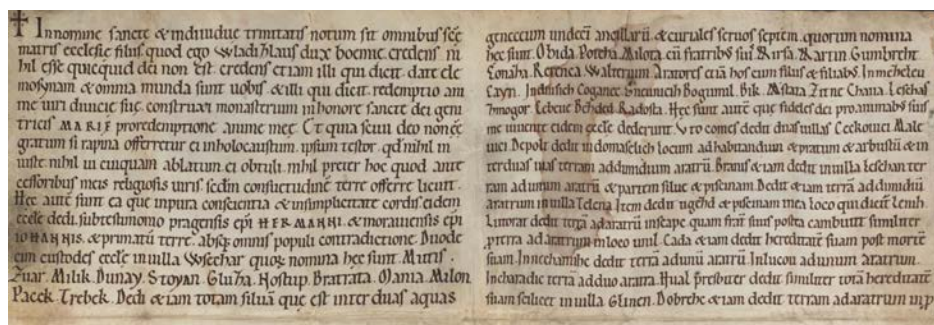 ☩ In nomine sancte & individue trinitatis notum sit omnibus sce
matris ecclesie filiis quod ego Wladizlaus dux boemie credens ni
hil esse quicquid dei non est credens etiam illi qui dicit date ele
mosinam & omnia munda sunt uobis & illi qui dicit redemptio ani
me uiri diuicie sue construxi monasterium in honore sancte dei geni
tricis MARIE pro redemptione anime mee. Et quia seruu deo non ee
gratum si rapina offerretur ei in holocaustum. ipsum testor. qd nihil in
iuste. nihil ui cuiquam ablatum ei obtuli. nihil preter hoc quod ante
cessoribus meis religiosis uiris sedm consuetudine terre offerre licuit.
Hec aute sunt ea que in pura conscientia & in simplicitate cordis eidem
eccle dedi. sub testimonio pragensis epi HERMANNI. & morauiensis epi
IOHANNIS. & primatu terre. absq omnis populi contradictione. Duode
cim custodes eccle in uilla Wsechar quoz nomina hec sunt. Mutis.
Zuar. Milik. Dunay. Stoyan. Gluzha. Hostup. Bratrata. Mania. Milon.
Pacek. Trebek. Dedi & iam totam silua que est inter duas aquas
geneceum undeci ancillaru. & curiales seruos septem. quorum nomina
hec sunt. Obida. Potcha. Milota cu fratribs suis. Mirsa. Martin. Gumbreht
Aratores etia hos cum filiis & filiabs. In
Bogumil. Bik. Mistata. Zizne. Chana.
Radosta. Hec sunt aute que fideles dei pro animabs suis
me uiuente eidem eccle dederunt. Vto comes dedit duas uillas Ceckouici. Male
uici. Depolt dedit in domaselich locum ad habitandum & pratum & arbustu & in
ter duas uias terram ad dimidium aratru. Branis & iam dedit in uilla Leschan ter
ram ad unum aratru & partem silue & piscinam. Dedit & iam terra ad dimidiu
aratrum in uilla Tedena. Item dedit ugehd & piscinam in ea loco qui dicit Lemh.
Limorat dedit terra ad aratru in scape quam frat suus postea cambiuit similiter
p terra ad aratrum in loco unil. Cada & iam dedit hereditate suam post morte
suam. In nechanihe dedit terra ad unu aratru. In lucou ad unum aratrum.
In charadie terra ad duo aratra. Hual presbiter dedit similiter tota hereditate
suam scilicet in uilla Glinen. Dobrehc & iam dedit terram ad aratrum in